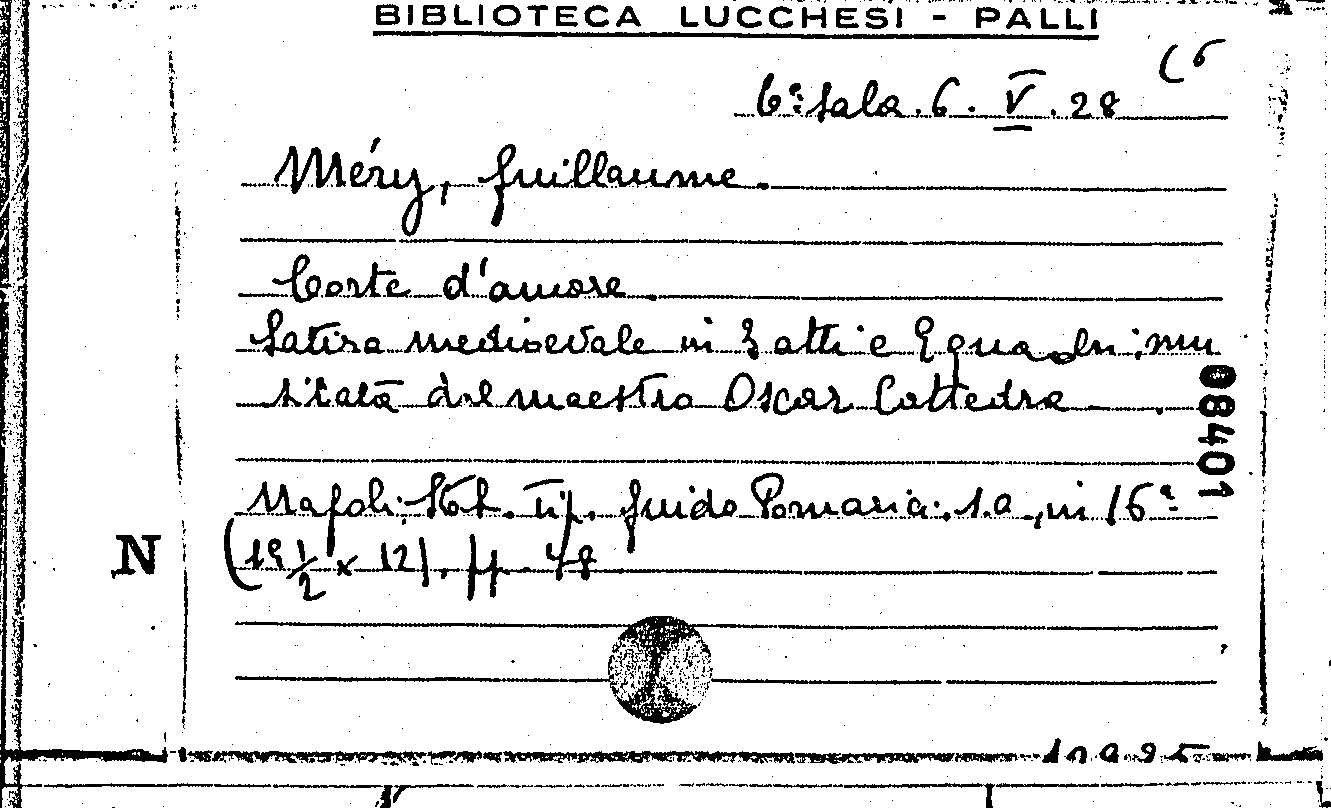 BIBLIOTECA LUCCHESI - PALLI
(6
6ª Sala. 6. V. 28
Méry, Guillaume.
Corte d'amore.
Satira medioevale in 3 atti e quadri: mu
sicata dal maestro Oscar Cattedra
08401
Napoli. Stab. Tip. Guido Pomaria. s.a, in 16º
N
(19 1/2 x 12). pp. 48